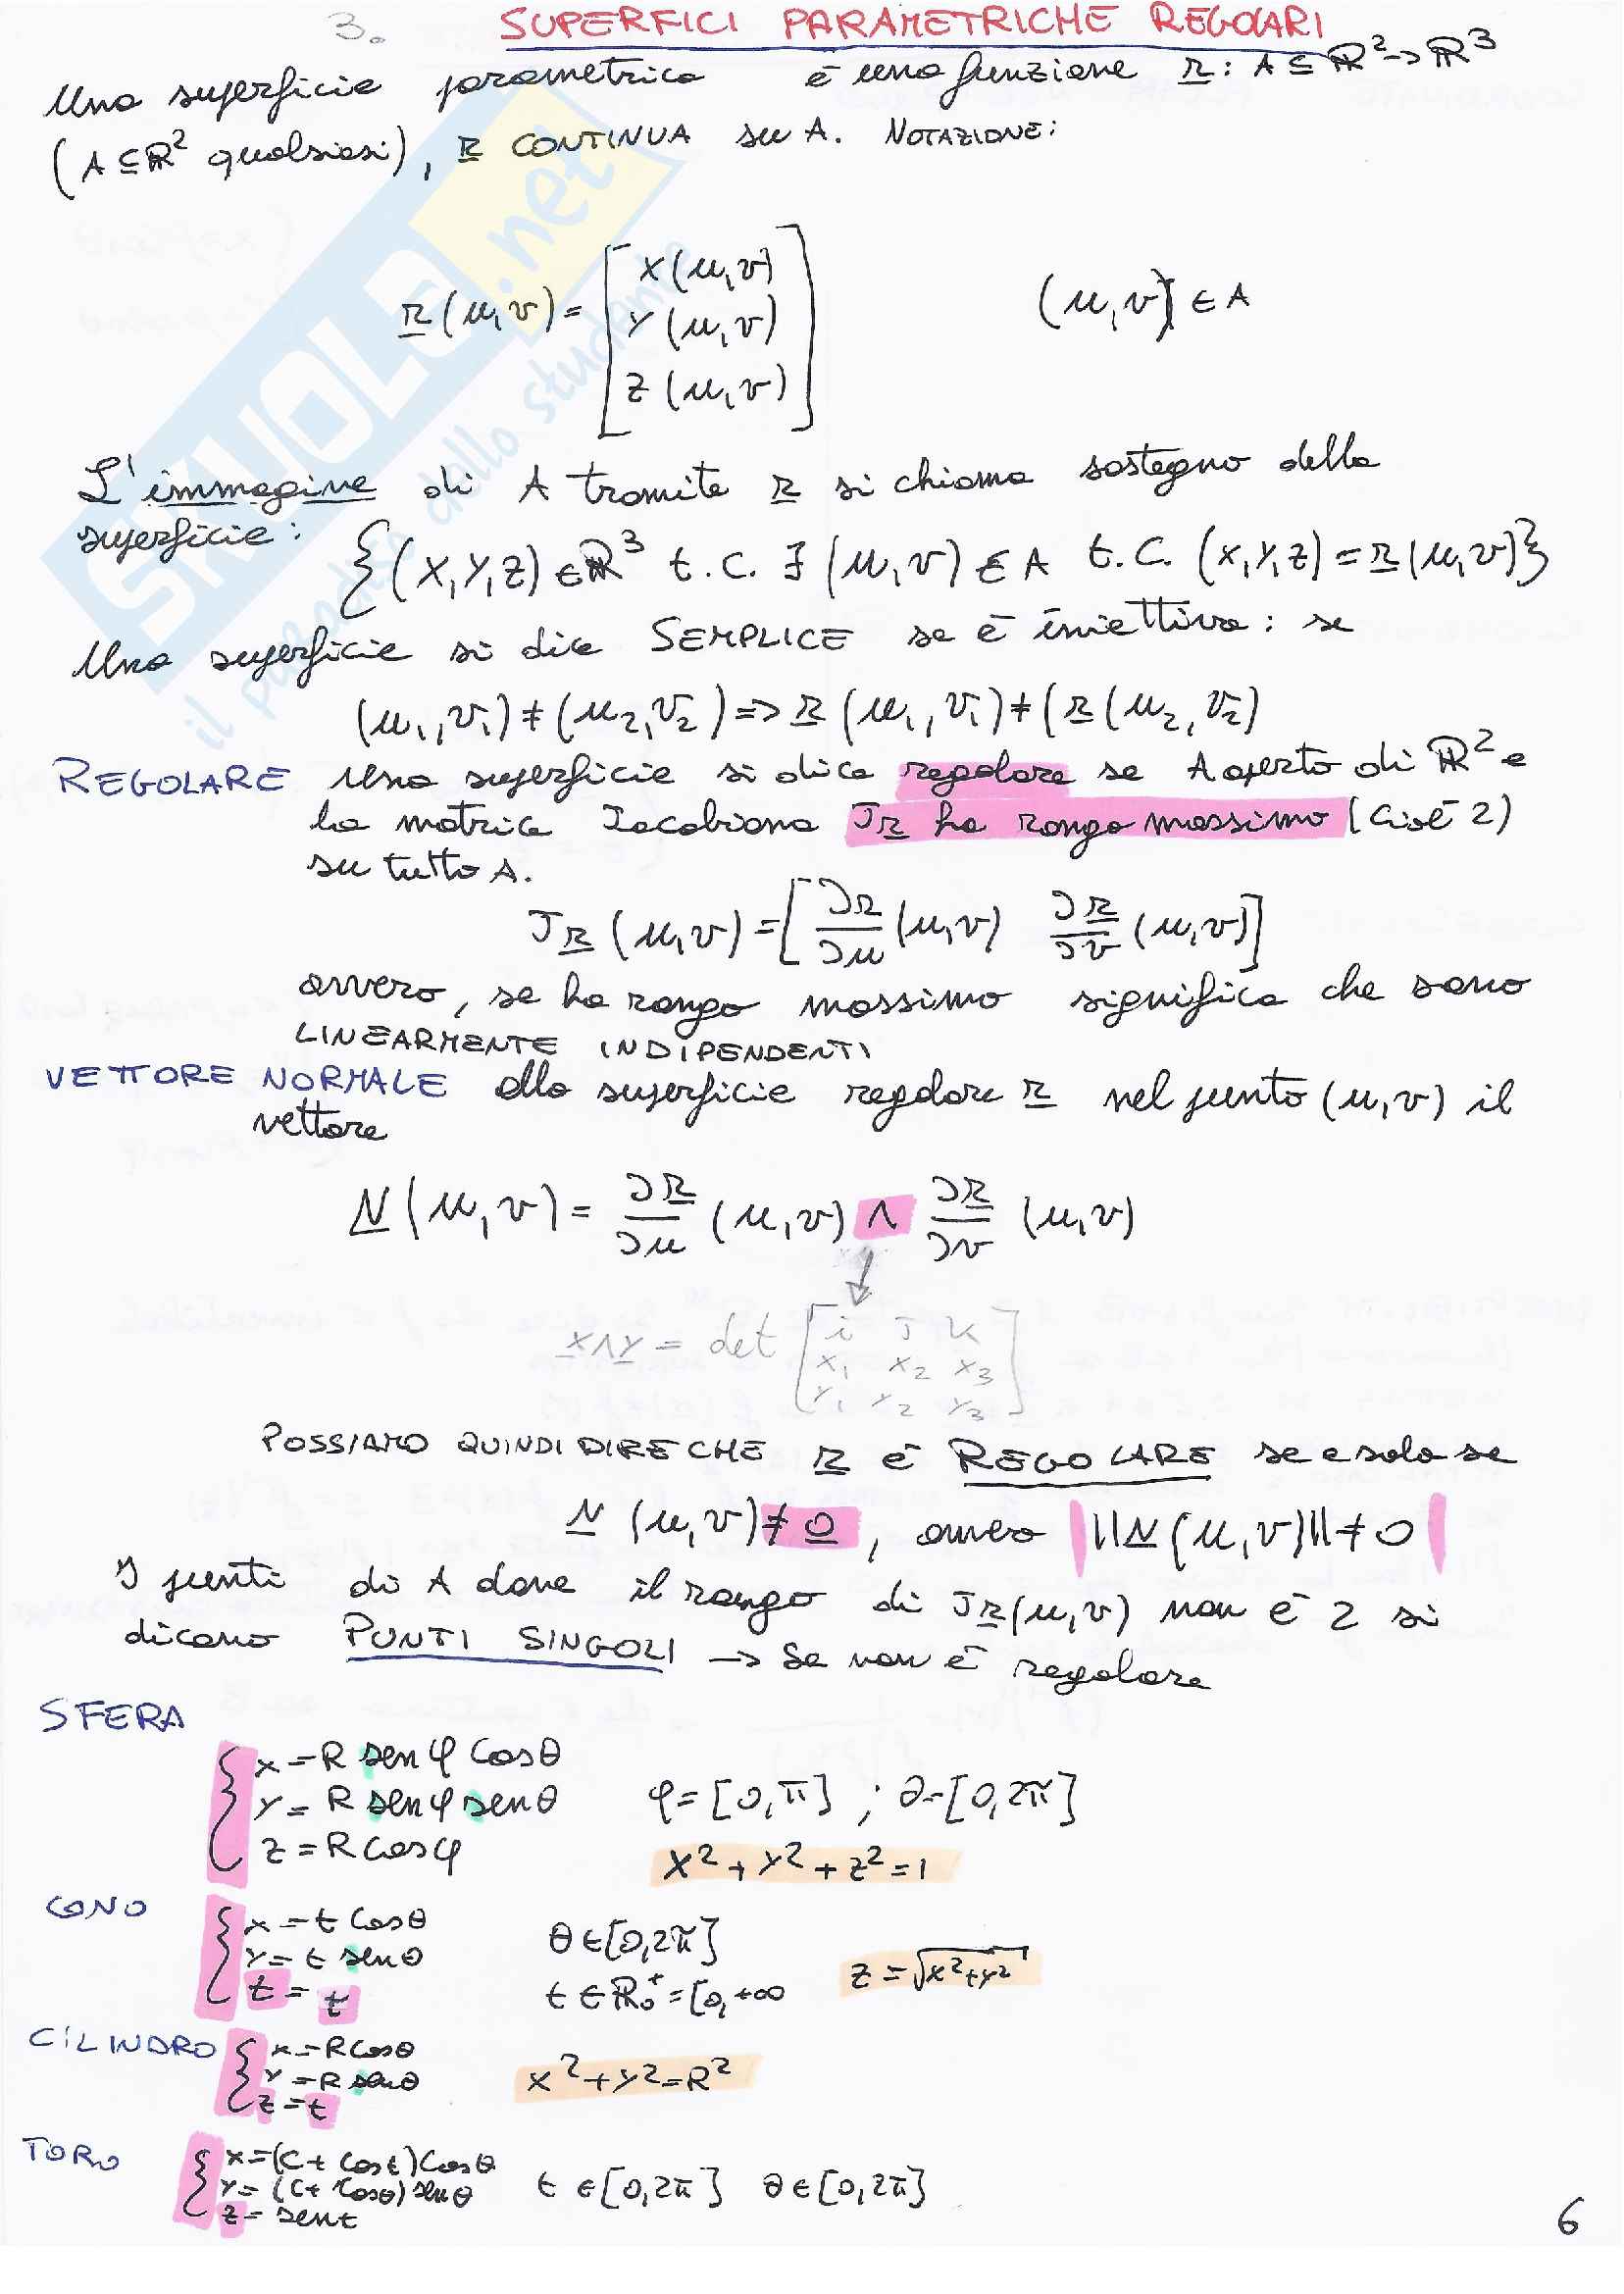 3. SUPERFICI PARAMETRICHE REGOLARI
Una superficie parametrica è una funzione r: A ⊆ ℝ² → ℝ³
(A ⊆ ℝ² qualsiasi), r CONTINUA su A. NOTAZIONE:
r(u,v) = [ x(u,v)
y(u,v)
z(u,v) ] (u,v) ∈ A
L'immagine di A tramite r si chiama sostegno della
superficie: {(x,y,z) ∈ ℝ³ t.c. ∃ (u,v) ∈ A t.c. (x,y,z) = r(u,v)}
Una superficie si dice SEMPLICE se è iniettiva: se
(u₁,v₁) ≠ (u₂,v₂) => r(u₁,v₁) ≠ (r(u₂,v₂)
REGOLARE Una superficie si dice regolare se A aperto di ℝ² e
la matrice Jacobiana Jr ha rango massimo (cioè 2)
su tutto A.
Jr(u,v) = [ ∂r/∂u (u,v) ∂r/∂v (u,v) ]
ovvero, se ha rango massimo significa che sono
LINEARMENTE INDIPENDENTI
VETTORE NORMALE alla superficie regolare r nel punto (u,v) il
vettore
N(u,v) = ∂r/∂u (u,v) ∧ ∂r/∂v (u,v)
x∧y = det [ i J K
x₁ x₂ x₃
y₁ y₂ y₃ ]
POSSIAMO QUINDI DIRE CHE r è REGOLARE se e solo se
N(u,v) ≠ 0, ovvero ||N(u,v)|| ≠ 0
I punti di A dove il rango di Jr(u,v) non è 2 si
dicono PUNTI SINGOLI → Se non è regolare
SFERA
{ x = R sen φ cos θ
y = R sen φ sen θ φ = [0,π] ; θ = [0,2π]
z = R cos φ x² + y² + z² = 1
CONO { x = t cos θ θ ∈ [0,2π]
y = t sen θ z = √x²+y²
t = t t ∈ ℝ₀⁺ = [0,+∞
CILINDRO { x = R cos θ
y = R sen θ x² + y² = R²
z = t
TORO { x = (C + cos t) cos θ
y = (C + cos θ) sen θ t ∈ [0,2π] θ ∈ [0,2π]
z = sen t
6
SKUOLA.net
il paradiso dello studente